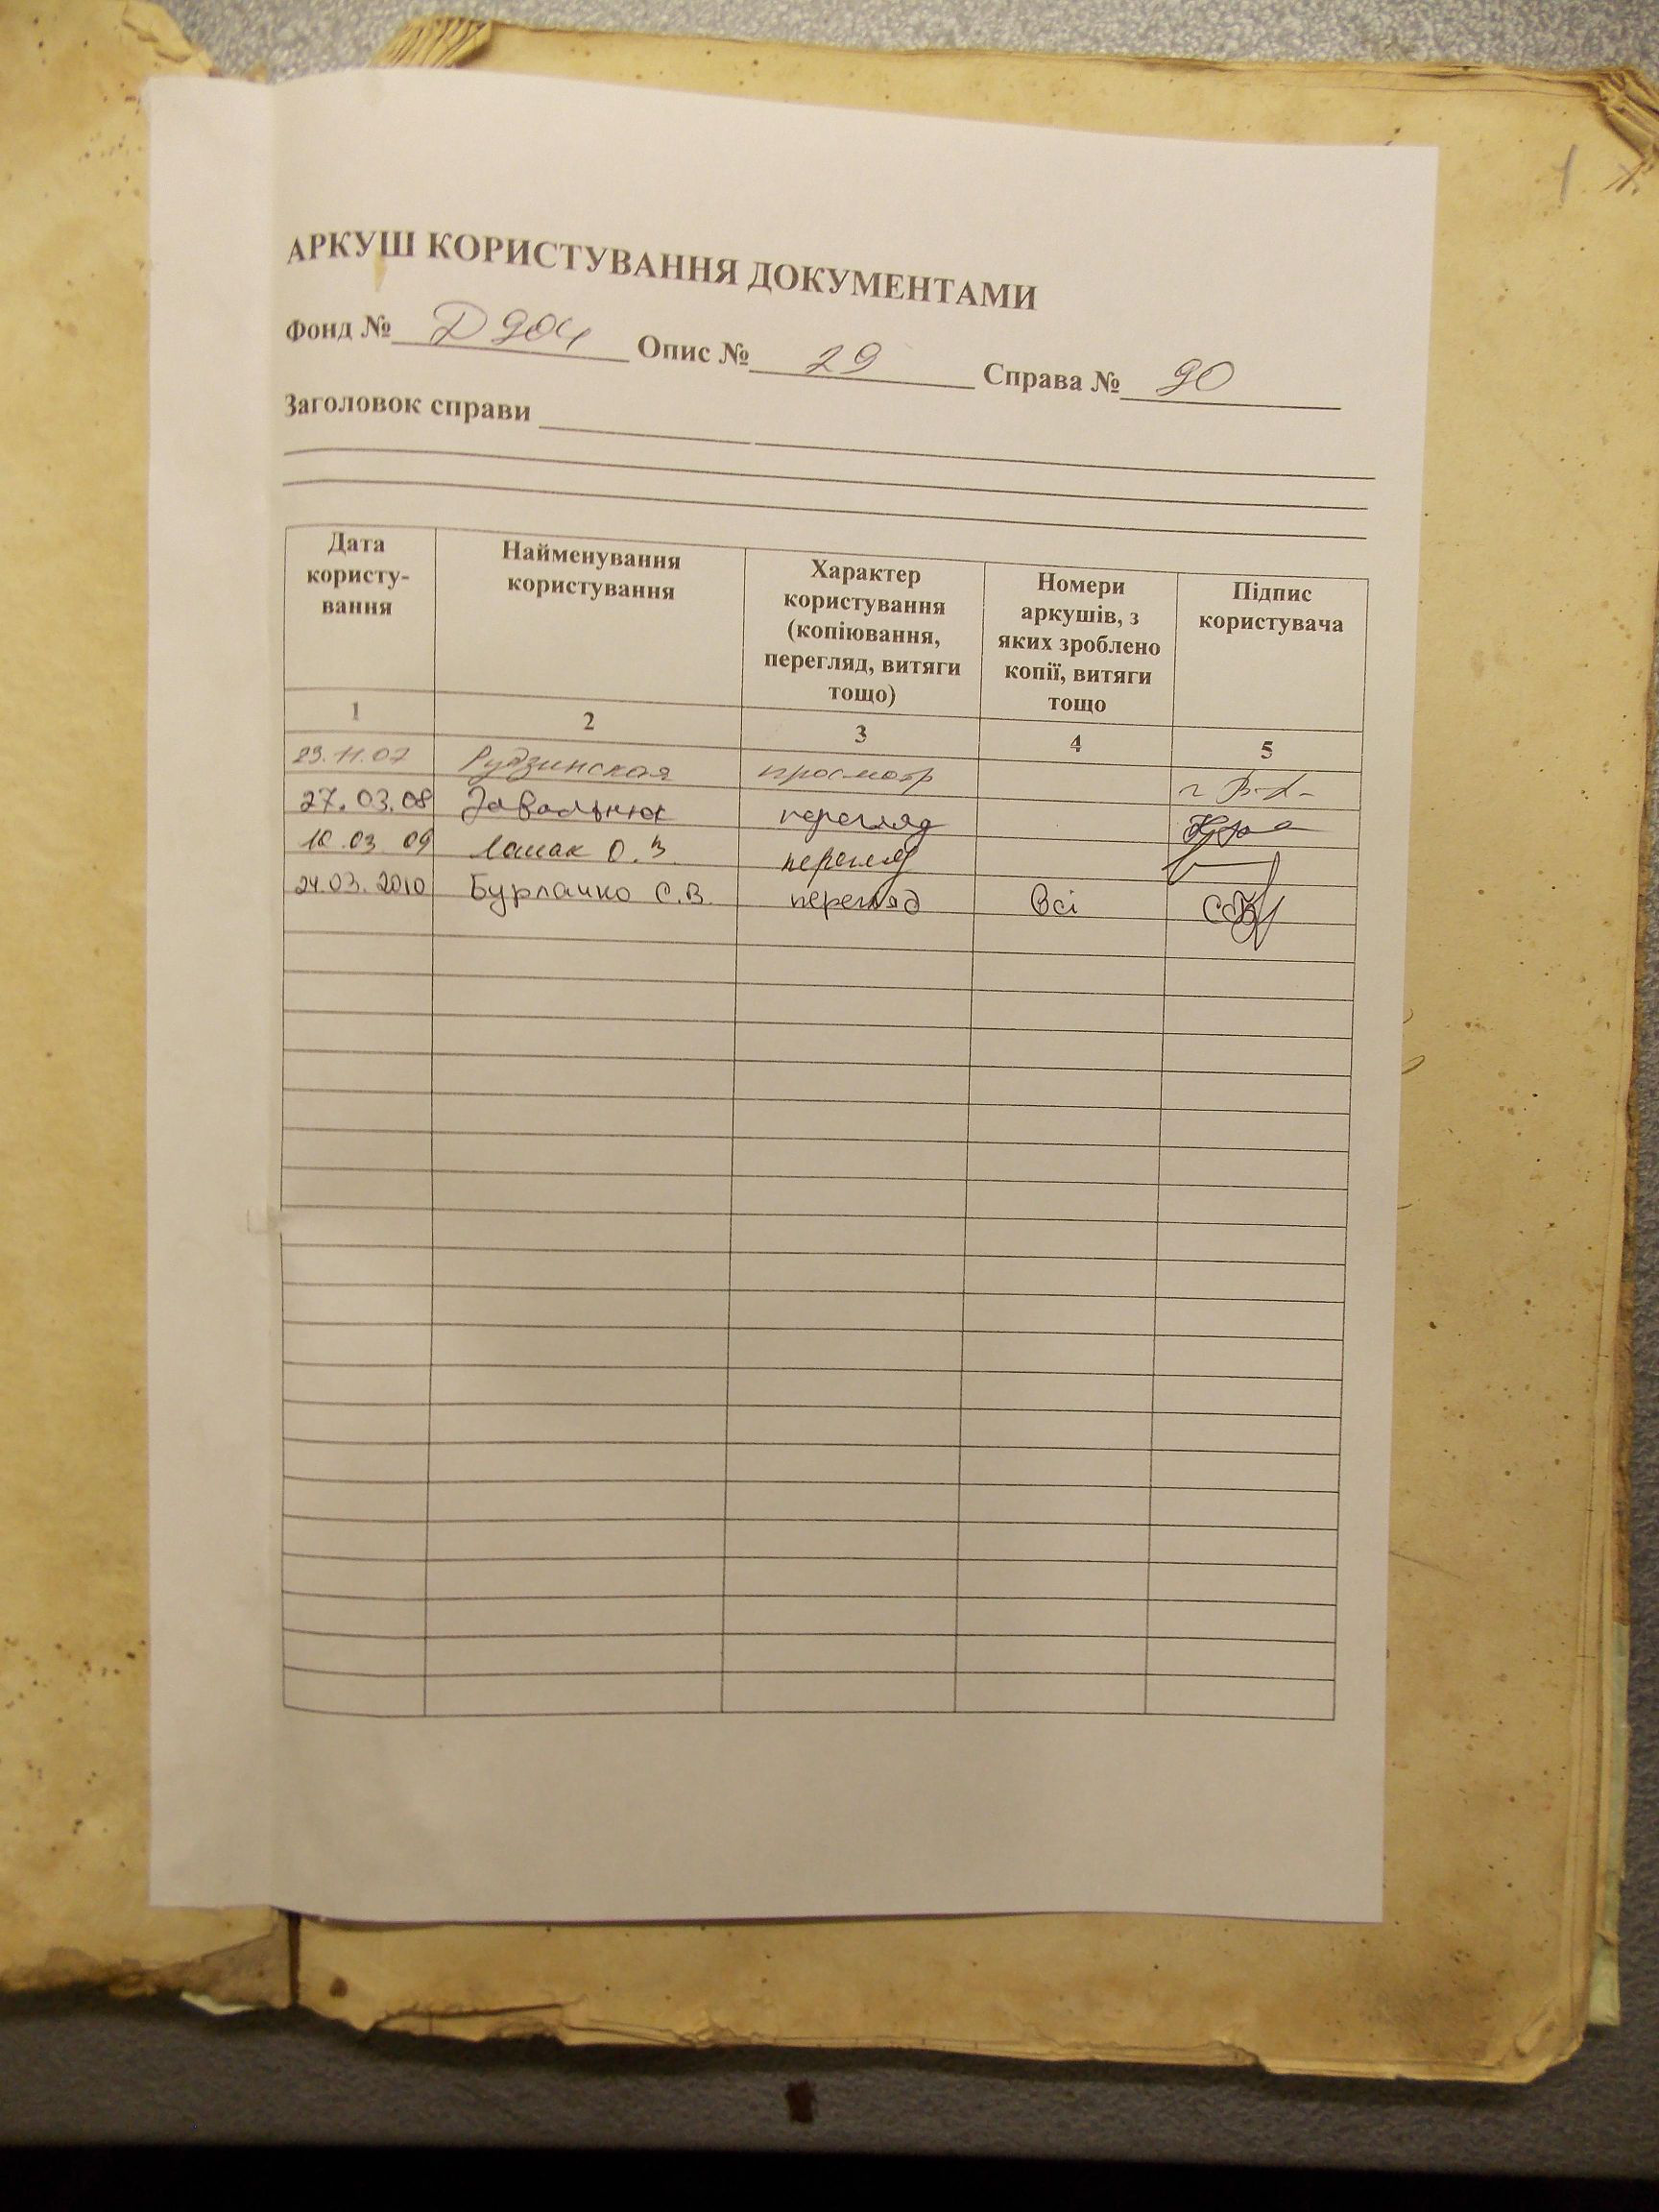 АРКУШ КОРИСТУВАННЯ ДОКУМЕНТАМИ
Фонд № Д 904 Опис № 29 Справа № 90
Заголовок справи
Дата користу-вання Найменування користування Характер користування (копіювання, перегляд, витяги тощо) Номери аркушів, з яких зроблено копії, витяги тощо Підпис користувача
1 2 3 4 5
23.11.07 Рудзинская просмотр
27.03.08 Завальнюк перегляд
10.03 09 О.З. перегляд
24.03.2010 Бурлачко С.В. перегляд Всі
1